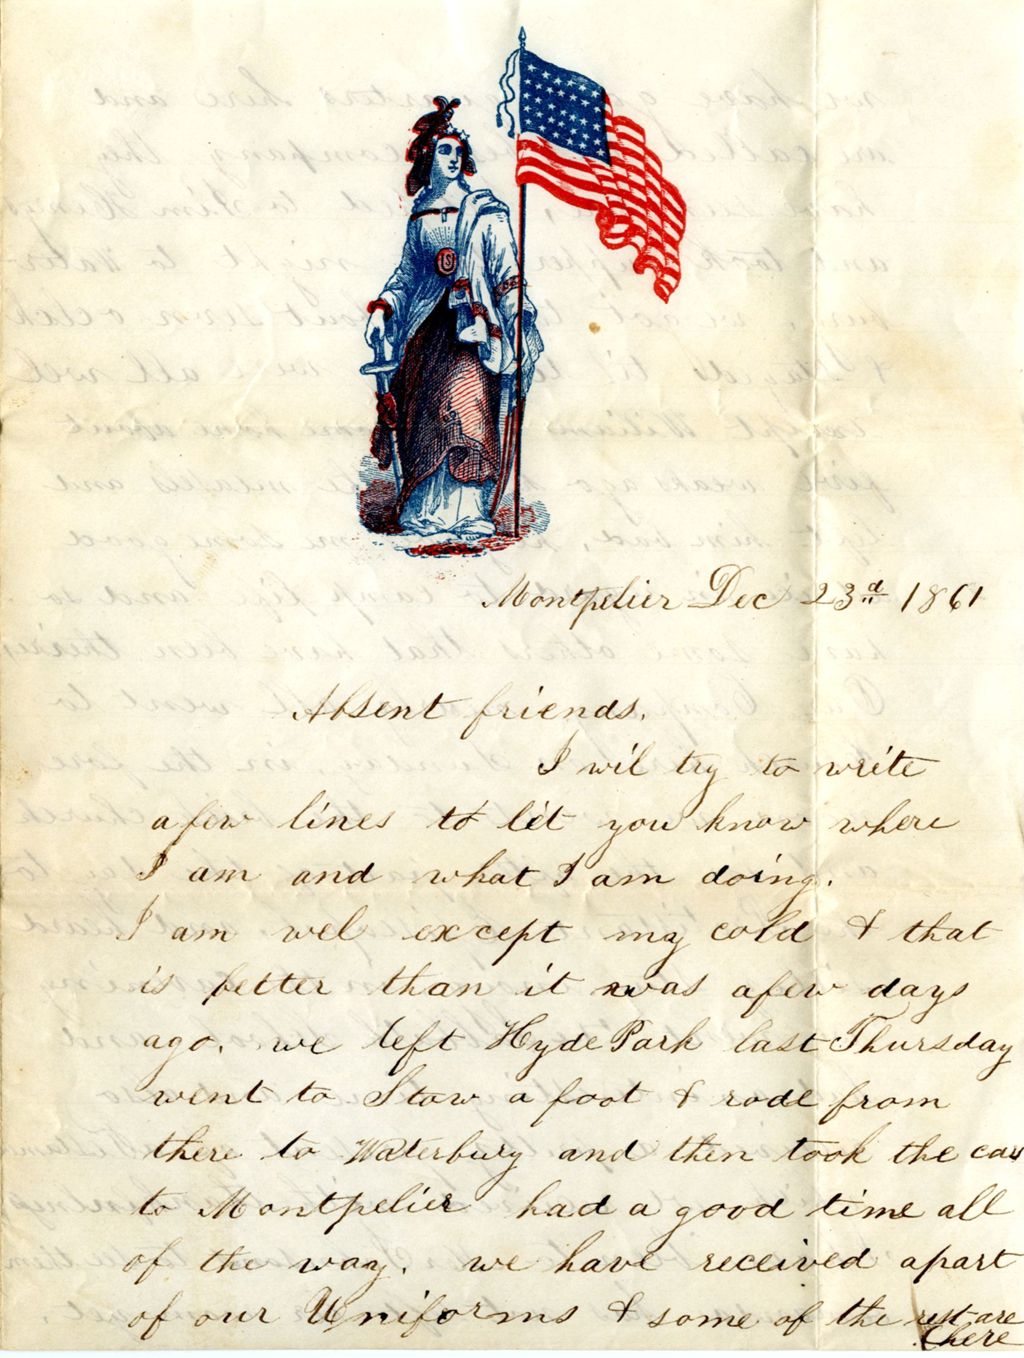 US
Montpelier Dec 23rd 1861
Absent friends.
I wil try to write
afew lines to let you know where
I am and what I am doing.
I am wel except my cold & that
is better than it was afew days
ago. we left Hyde Park last Thursday
went to Stow a foot & rode from
there to Waterbury and then took the cars
to Montpelier had a good time all
of the way. we have received apart
of our Uniforms & some of the rest are
here